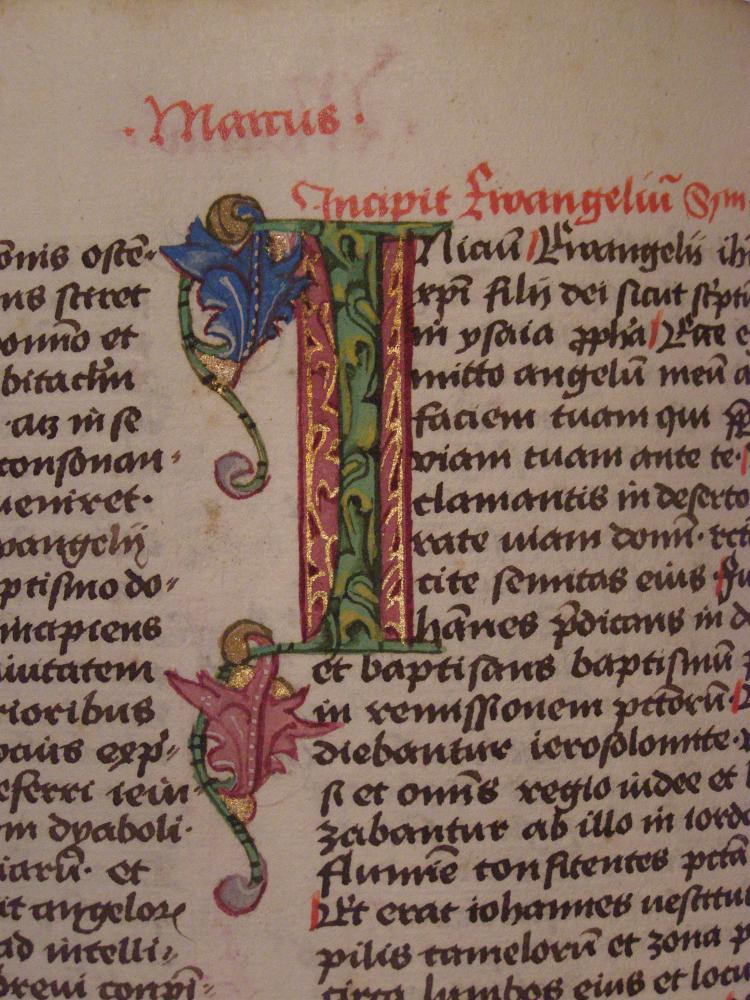 · Marcus ·
ōnis ostē-
ns sciret
omīno et
bitaclm̄
· atz in se
consonan-
ueniret·
wangelij
ptismo do-
incipiens
iuitatem
rioribus
ocius exp̄-
eferri ieiu-
m dyaboli·
iarū· et
it angeloꝝ
ad intelli-
breui conpī-
Incipit Ewangeliū Sm
INiciū Ewangelij ih
xp̄i filij dei sicut sc̄pt
in ysaia ꝓpha Ecce e
mitto angelū meū a
faciem tuam qui
viam tuam ante te·
clamantis in deserto
rate uiam domī· rct
cite semitas eius
hānes p̄dicans in d
et baptisans baptismū
in remissionem pctōrū·
diebantur ierosolomite·
si et om̄s regio iudee et
zabantur ab illo in iord
flumīe confitentes pctā
Et erat iohannes uestitu
pilis camelorū et zona p
circa lumbos eius et locu